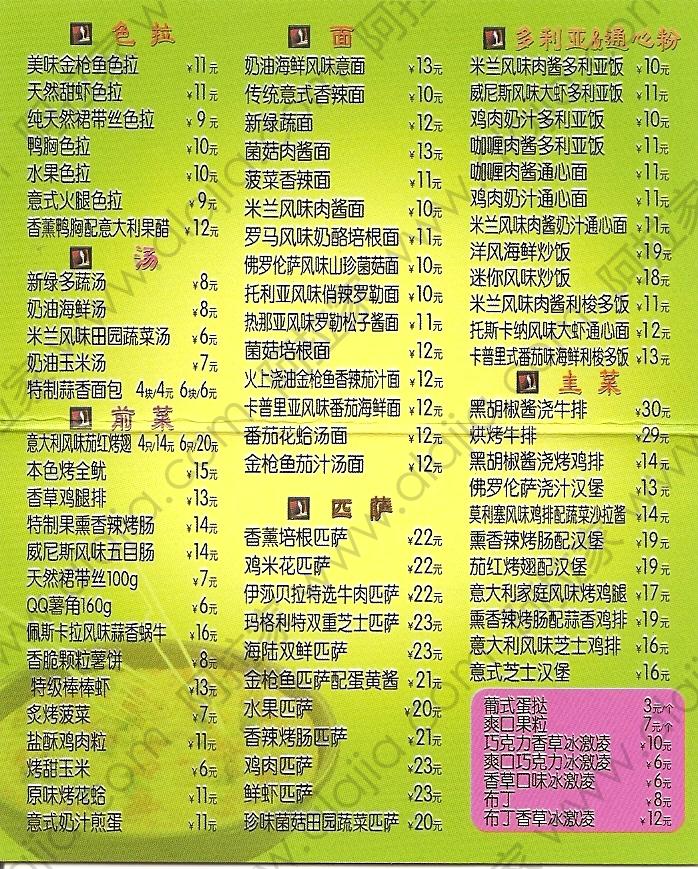 色拉
美味金枪鱼色拉 ¥11元
天然甜虾色拉 ¥11元
纯天然裙带丝色拉 ¥9元
鸭胸色拉 ¥10元
水果色拉 ¥10元
意式火腿色拉 ¥9元
香薰鸭胸配意大利果醋 ¥12元
汤
新绿多蔬汤 ¥8元
奶油海鲜汤 ¥8元
米兰风味田园蔬菜汤 ¥6元
奶油玉米汤 ¥7元
特制蒜香面包 4块/4元 6块/6元
前菜
意大利风味茄红烤翅 4只/14元 6只/20元
本色烤全鱿 ¥15元
香草鸡腿排 ¥13元
特制果熏香辣烤肠 ¥14元
威尼斯风味五目肠 ¥14元
天然裙带丝100g ¥7元
QQ薯角160g ¥6元
佩斯卡拉风味蒜香蜗牛 ¥16元
香脆颗粒薯饼 ¥8元
特级棒棒虾 ¥13元
炙烤菠菜 ¥7元
盐酥鸡肉粒 ¥11元
烤甜玉米 ¥6元
原味烤花蛤 ¥11元
意式奶汁煎蛋 ¥11元
面
奶油海鲜风味意面 ¥13元
传统意式香辣面 ¥10元
新绿蔬面 ¥12元
菌菇肉酱面 ¥13元
菠菜香辣面 ¥11元
米兰风味肉酱面 ¥10元
罗马风味奶酪培根面 ¥11元
佛罗伦萨风味山珍菌菇面 ¥10元
托利亚风味俏辣罗勒面 ¥10元
热那亚风味罗勒松子酱面 ¥11元
菌菇培根面 ¥12元
火上浇油金枪鱼香辣茄汁面 ¥12元
卡普里亚风味番茄海鲜面 ¥12元
番茄花蛤汤面 ¥12元
金枪鱼茄汁汤面 ¥12元
匹萨
香薰培根匹萨 ¥22元
鸡米花匹萨 ¥22元
伊莎贝拉特选牛肉匹萨 ¥22元
玛格利特双重芝士匹萨 ¥23元
海陆双鲜匹萨 ¥23元
金枪鱼匹萨配蛋黄酱 ¥21元
水果匹萨 ¥20元
香辣烤肠匹萨 ¥21元
鸡肉匹萨 ¥23元
鲜虾匹萨 ¥23元
珍味菌菇田园蔬菜匹萨 ¥20元
多利亚&通心粉
米兰风味肉酱多利亚饭 ¥10元
威尼斯风味大虾多利亚饭 ¥11元
鸡肉奶汁多利亚饭 ¥10元
咖喱肉酱多利亚饭 ¥11元
咖喱肉酱通心面 ¥11元
鸡肉奶汁通心面 ¥11元
米兰风味肉酱奶汁通心面 ¥11元
洋风海鲜炒饭 ¥19元
迷你风味炒饭 ¥18元
米兰风味肉酱利梭多饭 ¥11元
托斯卡纳风味大虾通心面 ¥12元
卡普里式番茄味海鲜利梭多饭 ¥13元
主菜
黑胡椒酱浇牛排 ¥30元
烘烤牛排 ¥29元
黑胡椒酱浇烤鸡排 ¥14元
佛罗伦萨浇汁汉堡 ¥13元
莫利塞风味鸡排配蔬菜沙拉酱 ¥14元
熏香辣烤肠配汉堡 ¥19元
茄红烤翅配汉堡 ¥19元
意大利家庭风味烤鸡腿 ¥17元
熏香辣烤肠配蒜香鸡排 ¥19元
意大利风味芝士鸡排 ¥16元
意式芝士汉堡 ¥16元
葡式蛋挞 3元/个
爽口果粒 7元/个
巧克力香草冰激凌 ¥10元
爽口巧克力冰激凌 ¥6元
香草口味冰激凌 ¥6元
布丁 ¥8元
布丁香草冰激凌 ¥12元